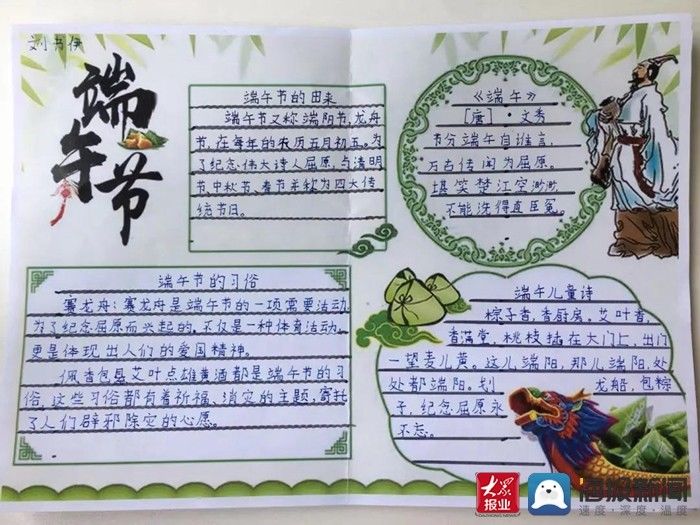 刘书伊
端午节
端午节的由来
端午节又称端阳节,龙舟
节,在每年的农历五月初五。为
了纪念伟大诗人屈原,与清明
节、中秋节、春节并称为四大传
统节日。
《端午》
[唐]·文秀
节分端午自谁言,
万古传闻为屈原。
堪笑楚江空渺渺,
不能洗得直臣冤。
端午节的习俗
赛龙舟:赛龙舟是端午节的一项需要活动,
为了纪念屈原而兴起的,不仅是一种体育活动,
更是体现出人们的爱国精神。
佩香包悬艾叶点雄黄酒都是端午节的习
俗,这些习俗都有着祈福、消灾的主题,寄托
了人们辟邪除灾的心愿。
端午儿童诗
粽子香,香厨房,艾叶香,
香满堂,桃枝插在大门上,出门
一望麦儿黄。这儿端阳,那儿端阳,处
处都端阳。划龙船,包粽
子,纪念屈原永
不忘。
大众报业
DAZHONG NEWS
海报新闻
速度·深度·温度